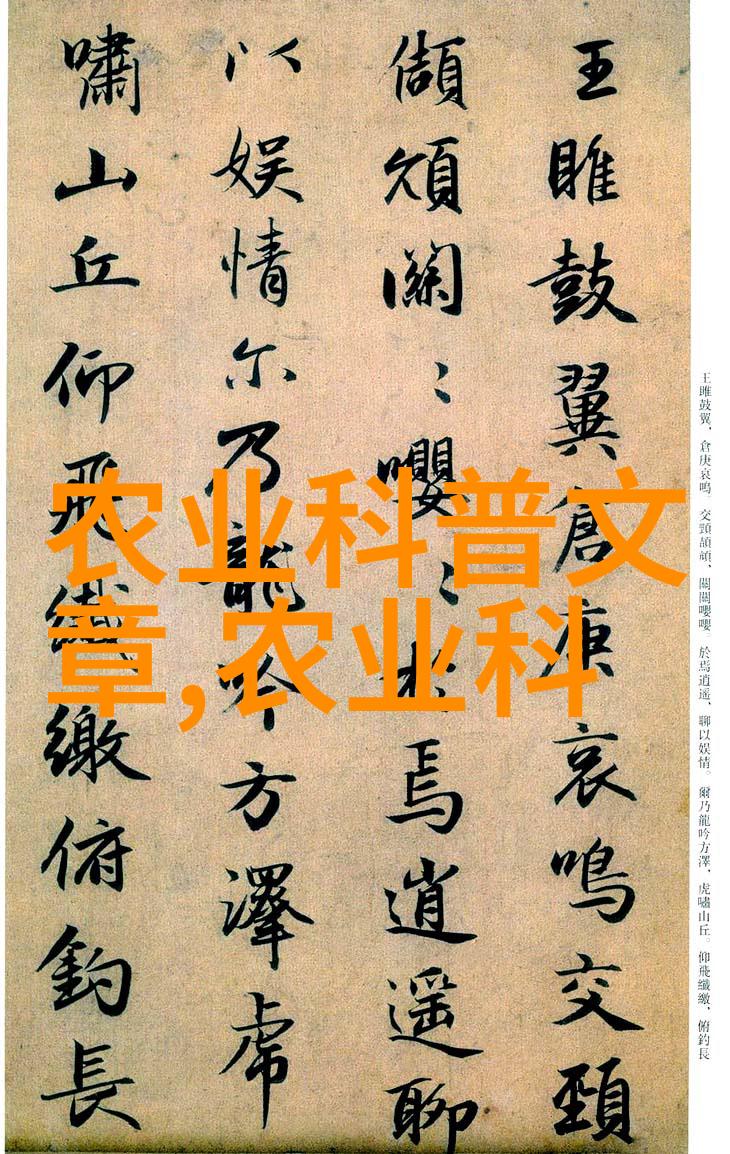 农业科普文
章,农业科
王雎鼓翼倉庚哀鳴交頸
頡頏關〻嚶〻於焉逍遥聊
以娱情尔乃龍吟方澤虎
嘯山丘仰飛纖繳俯釣長
王雎鼓翼、倉庚哀鳴。交頸頡頏、關關嚶嚶。於焉逍遥、聊以娱情。爾乃龍吟方澤、虎嘯山丘。仰飛纖繳、俯釣長